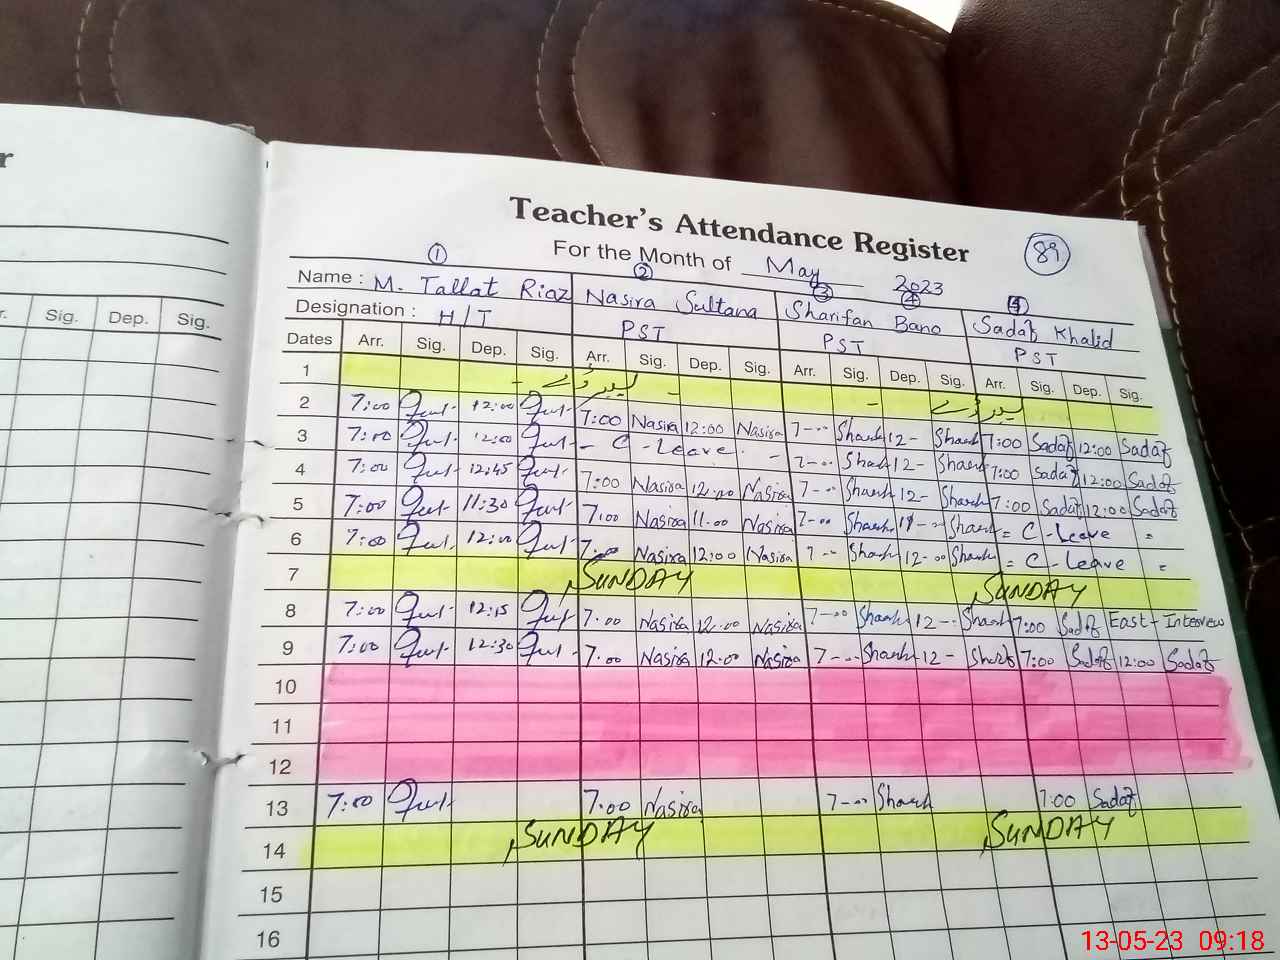 r
Teacher's Attendance Register
89
For the Month of May 2023
1 2 3 4 4
Name : M. Tallat Riaz Nasira Sultana Sharifan Bano Sadaf Khalid
Designation : H/T PST PST PST
r. Sig. Dep. Sig.
Dates Arr. Sig. Dep. Sig. Arr. Sig. Dep. Sig. Arr. Sig. Dep. Sig. Arr. Sig. Dep. Sig.
1 - لیبر ڈے - - لیبر ڈے
2 7:00 12:00 7:00 Nasira 12:00 Nasira 7-00 Sharf 12- Sharf 7:00 Sadaf 12:00 Sadaf
3 7:00 12:00 - C-Leave. - 7-00 Sharf 12- Sharf 7:00 Sadaf 12:00 Sadaf
4 7:00 12:45 7:00 Nasira 12:00 Nasira 7-00 Sharf 12- Sharf 7:00 Sadaf 12:00 Sadaf
5 7:00 11:30 7:00 Nasira 11.00 Nasira 7-00 Sharf 11-00 Sharf = C-Leave =
6 7:00 12:00 7:00 Nasira 12:00 Nasira 7-00 Sharf 12-00 Sharf = C-Leave =
7 SUNDAY SUNDAY
8 7:00 12:15 7.00 Nasira 12.00 Nasira 7-00 Sharf 12-- Sharf 7:00 Sadaf East-Interview
9 7:00 12:30 7.00 Nasira 12.00 Nasira 7-00 Sharf 12- Sharf 7:00 Sadaf 12:00 Sadaf
10
11
12
13 7:00 7.00 Nasira 7-00 Sharf 7:00 Sadaf
14 SUNDAY SUNDAY
15
16
13-05-23 09:18